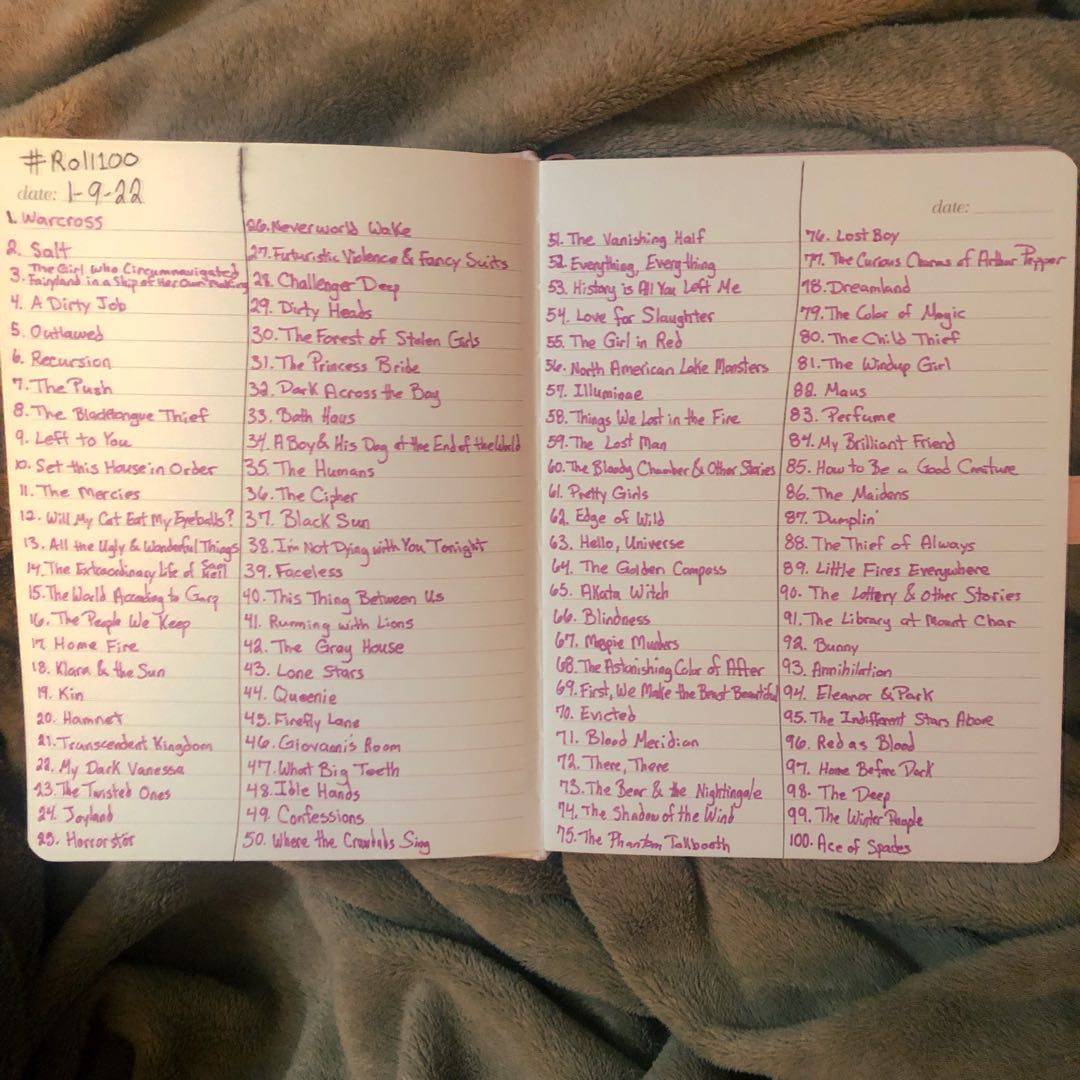 #Roll100
date: 1-9-22
1. Warcross
2. Salt
3. The Girl Who Circumnavigated
Fairyland in a Ship of Her Own Making
4. A Dirty Job
5. Outlawed
6. Recursion
7. The Push
8. The Blacktongue Thief
9. Left to You
10. Set this House in Order
11. The Mercies
12. Will My Cat Eat My Eyeballs?
13. All the Ugly & Wonderful Things
14. The Extraordinary Life of Sam Hell
15. The World According to Garp
16. The People We Keep
17. Home Fire
18. Klara & the Sun
19. Kin
20. Hamnet
21. Transcendent Kingdom
22. My Dark Vanessa
23. The Twisted Ones
24. Joyland
25. Horrorstör
26. Neverworld Wake
27. Futuristic Violence & Fancy Suits
28. Challenger Deep
29. Dirty Heads
30. The Forest of Stolen Girls
31. The Princess Bride
32. Dark Across the Bay
33. Bath Haus
34. A Boy & His Dog at the End of the World
35. The Humans
36. The Cipher
37. Black Sun
38. I'm Not Dying with You Tonight
39. Faceless
40. This Thing Between Us
41. Running with Lions
42. The Gray House
43. Lone Stars
44. Queenie
45. Firefly Lane
46. Giovanni's Room
47. What Big Teeth
48. Idle Hands
49. Confessions
50. Where the Crawdads Sing
date:
51. The Vanishing Half
52. Everything, Everything
53. History is All You Left Me
54. Love for Slaughter
55. The Girl in Red
56. North American Lake Monsters
57. Illuminae
58. Things We Lost in the Fire
59. The Lost Man
60. The Bloody Chamber & Other Stories
61. Pretty Girls
62. Edge of Wild
63. Hello, Universe
64. The Golden Compass
65. Akata Witch
66. Blindness
67. Magpie Murders
68. The Astonishing Color of After
69. First, We Make the Beast Beautiful
70. Evicted
71. Blood Meridian
72. There, There
73. The Bear & the Nightingale
74. The Shadow of the Wind
75. The Phantom Tollbooth
76. Lost Boy
77. The Curous Charms of Arthur Pepper
78. Dreamland
79. The Color of Magic
80. The Child Thief
81. The Windup Girl
82. Maus
83. Perfume
84. My Brilliant Friend
85. How to Be a Good Creature
86. The Maidens
87. Dumplin'
88. The Thief of Always
89. Little Fires Everywhere
90. The Lottery & Other Stories
91. The Library at Mount Char
92. Bunny
93. Annihilation
94. Eleanor & Park
95. The Indifferent Stars Above
96. Red as Blood
97. Home Before Dark
98. The Deep
99. The Winter People
100. Ace of Spades